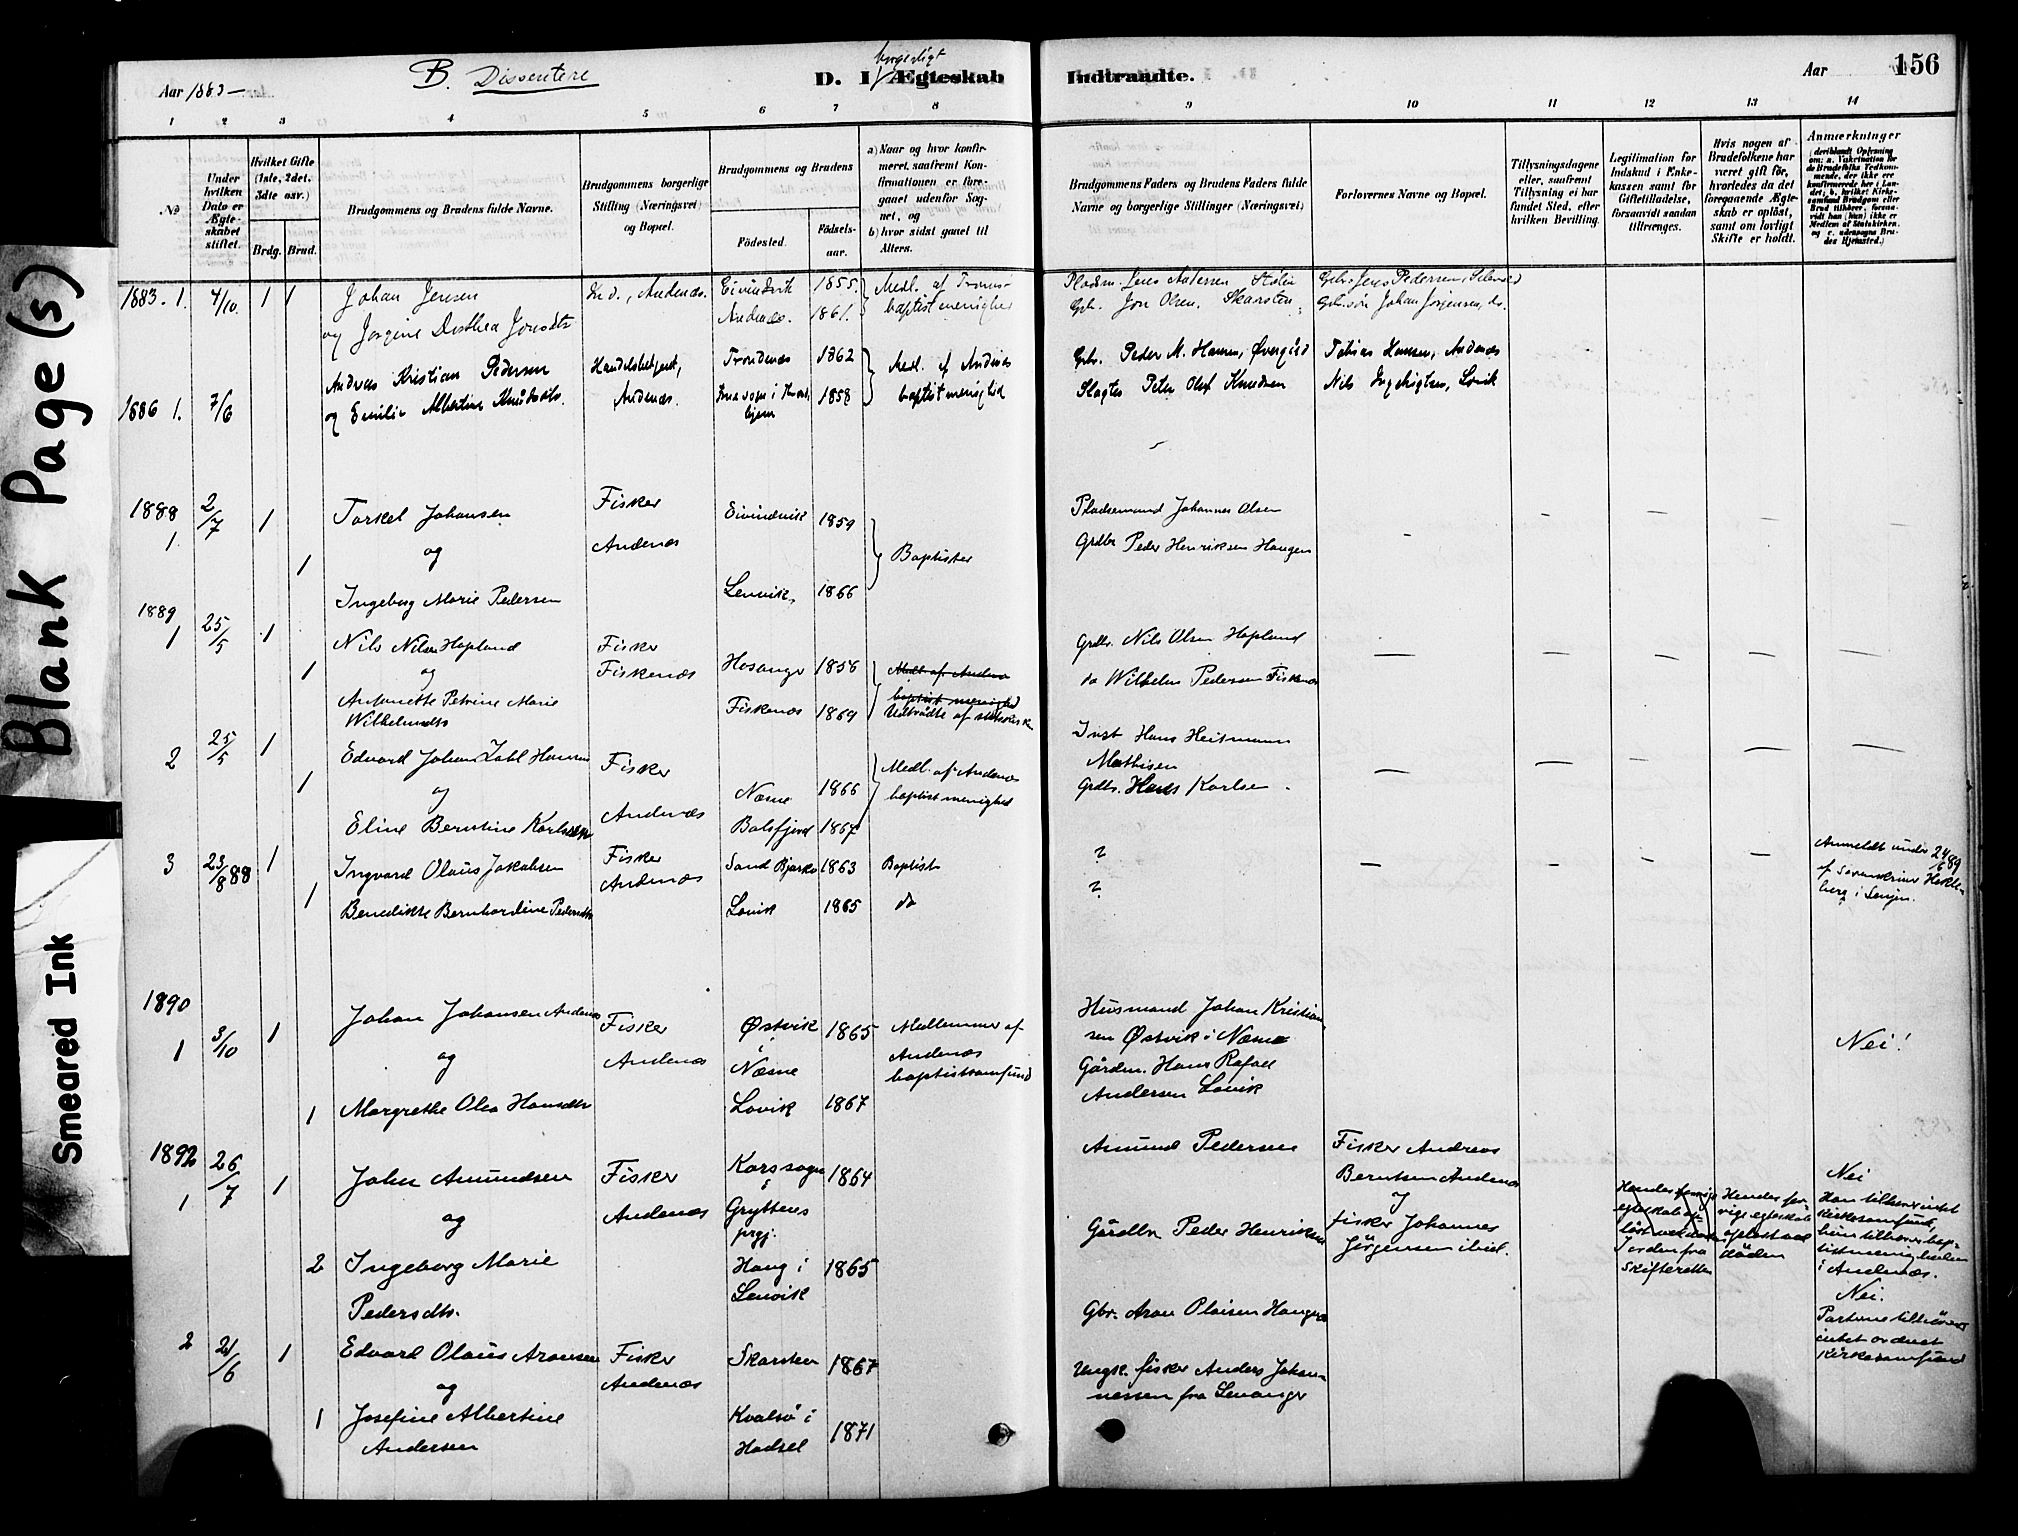 Blank Page(s)
Smeared Ink
Aar 1883 —
B. Dissentere
borgerligt
D. I Ægteskab
Indtraadte.
Aar
156
1 2 3 4 5 6 7 8 9 10 11 12 13 14
No
Under hvilken Dato er Ægteskabet stiftet.
Hvilket Gifte (1ste, 2det, 3die osv.)
Brdg. Brud.
Brudgommens og Brudens fulde Navne.
Brudgommens borgerlige Stilling (Næringsvei) og Bopæl.
Brudgommens og Brudens
Fødested.
Fødselsaar.
a) Naar og hvor konfirmeret, saafremt Konfirmationen er foregaaet udenfor Sognet, og
b) hvor sidst gaaet til Alters.
Brudgommens Faders og Brudens Faders fulde Navne og borgerlige Stillinger (Næringsvei)
Forlovernes Navne og Bopæl.
Tillysningsdagene eller, saafremt Tillysning ei har fundet Sted, efter hvilken Bevilling.
Legitimation for Indskud i Enkekassen samt for Giftetilladelse, forsaavidt saadan tiltrænges.
Hvis nogen af Brudefolkene har været gift før, hvorledes da det foregaaende Ægteskab er opløst, samt om lovligt Skifte er holdt.
Anmærkninger
1883. 1. 4/10. 1 1
Johan Jensen
og Jorgine Dorthea Jonsdtr
Andenæs.
Eivindvik 1855.
Andenæs. 1861.
Medl. af Tromsø
baptistmenighed
Gbr. Jon Olsen, Skarsten
Gbr. Jens Pedersen,
Johan Jørgensen, ds.
1886 1. 7/6
Andreas Kristian Pedersen
og Emilie Albertine Knudsdtr.
Handelsbetjent,
Andenæs.
Trondenæs 1862
1858
Medl. af Andenæs
baptistmenighed
Gbr. Peder M. Hansen, Øvergård
Peter Olaf Knudsen
Tobias Hansen, Andenæs
Nils Ingebrigtsen, Lovik
1888
1. 2/7 1
Torkel Johansen
og
1
Ingeborg Marie Pedersen
Fisker
Andenæs
Eivindvik 1859
Lenvik, 1866
Baptister
Pladsemand Johannes Olsen
Grdbr Peder Henriksen Haugen
1889
1 25/5 1
Nils Nilsen Hopland
og
1
Antonette Petrine Marie
Wilhelmsdtr
Fisker
Fiskenæs
Hosanger 1856
Fiskenæs 1869
Medl. af Andenæs
baptistmenighed
Udtrådte af statskirk
Grdbr. Nils Olsen Hopland
do Wilhelm Pedersen Fiskenæs
2 25/5 1
Edvard Johan Zahl Hansen
og
1
Eline Berntine Karlsdtr
Fisker
Andenæs
Næsne 1866
Balsfjord 1867
Medl. af Andenæs
baptistmenighed
Inst Hans Heitmann
Mathisen
Grdbr. Hans Karlsen.
3 23/8 88 1
Ingvard Olaus Jakobsen
1
Benedikte Bernhardine Pedersdtr
Fisker
Andenæs
Sand Bjarkø 1863
Lovik 1865
Baptist
do
?
?
Anmeldt under 24/6 89
af Sorenskriver
berg i Senjen.
1890
1 3/10 1
Johan Johansen Andenæs
og
1
Margrethe Olea Hansdtr
Fisker
Andenæs
Østvik 1865
i
Næsne
Lovik 1867
Medlemmer af
Andenæs
baptistsamfund
Husmand Johan Kristian-
sen Østvik i Næsne
Gårdm. Hans Rafael
Andersen Lovik
Nei!
1892
1 26/7 1
Johan Amundsen
og
2
Ingeborg Marie
Pedersdtr.
Fisker
Andenæs
Korssogn 1864
i
Gryttens
prgj.
Haug i 1865
Lenvik
Amund Pedersen
Gårdbr Peder Henriksen
Fisker Andreas
Berntsen Andenæs
og
fisker Johannes
Jørgensen ibid.
Hendes forrige
egteskab op-
løst ved
fra
skifteretten
Hendes for-
rige egteskab
opløst ved
døden
Nei
Han tilhører intet
kirkesamfund,
hun tilhører bap-
tistmenigheden
i Andenæs.
2 21/6 1
Edvard Olaus Aronsen
og
1
Josefine Albertine
Andersen
Fisker
Andenæs
Skarsten 1867
Kvalsø i 1871
Hadsel
Gbr. Aron Haugen
Ungk. fisker Anders Johan-
nessen fra Levanger
Nei.
Parterne tilhører
intet ordnet
kirkesamfund